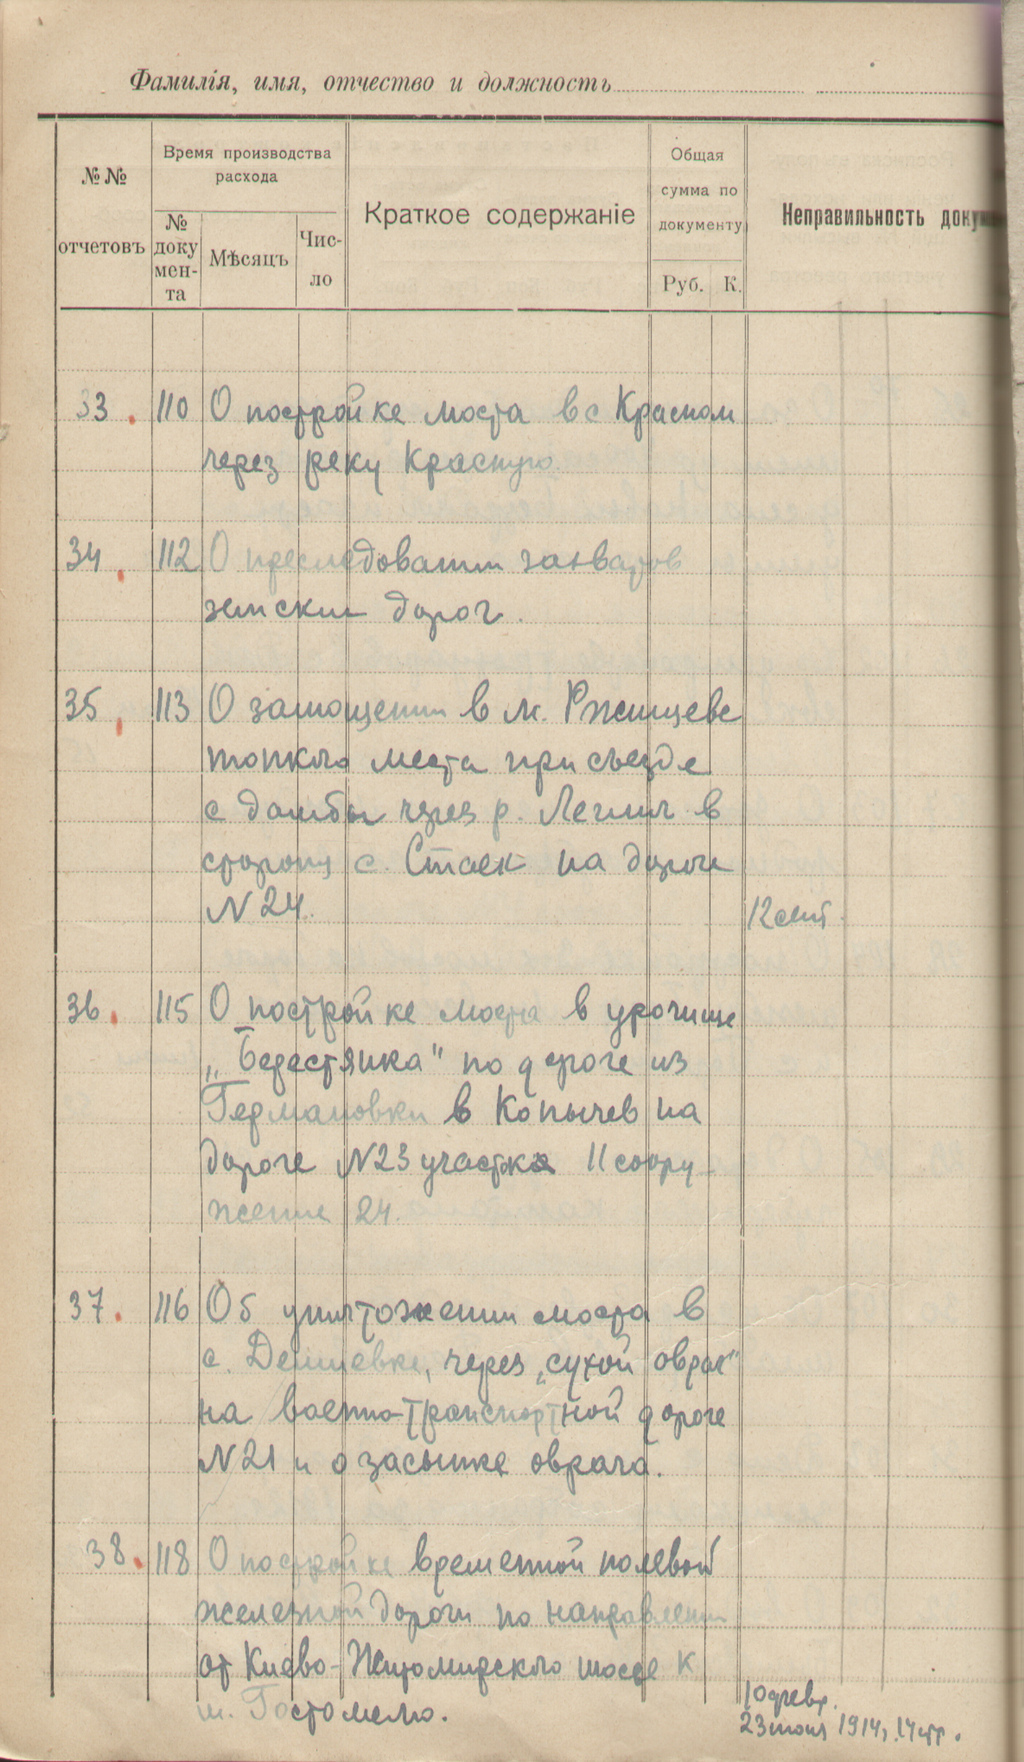 Фамилія, имя, отчество и должность
№№ отчетовъ
Время производства расхода
№ доку мен- та
Мѣсяцъ
Чис- ло
Краткое содержаніе
Общая сумма по документу
Руб. К.
Неправильность доку
33. 110 О постройке моста в с Красном
через реку Красную.
34. 112 О преследовании захватов
земских дорог.
35. 113 О замощении в м. Ржищеве
топкого места при съезде
с дамбы через р. Леглич в
сторону с. Стаек на дороге
N 24.
12 сент.
36. 115 О постройке моста в урочище
„Берестянка" по дороге из
Германовки в Копычев на
дороге N23 участка 11 соору
жение 24.
37. 116 Об уничтожении моста в
с. через „сухой овраг"
на военно-транспортной дороге
N21 и о засыпке оврага.
38. 118 О постройке временной полевой
железной дороги по направлению
от Киево-Житомирского шоссе к
м. Гостомелю.
10 февр.
23 июня 1914,